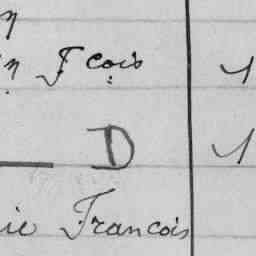 n Fçois 1
— D 1
ie Francois